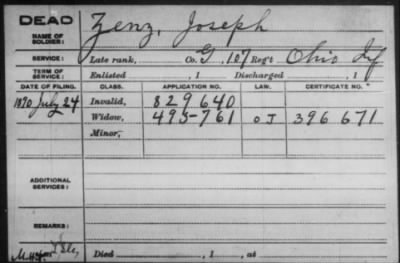 DEAD
NAME OF SOLDIER: Zenz, Joseph
SERVICE: Late rank, Co. G, 107 Reg't Ohio Inf
TERM OF SERVICE: Enlisted , 1 Discharged , 1
DATE OF FILING. CLASS. APPLICATION NO. LAW. CERTIFICATE NO.
1890 July 24 Invalid, 829640
Widow, 495-761 OJ 396671
Minor,
ADDITIONAL SERVICES:
REMARKS:
Died , 1 , at